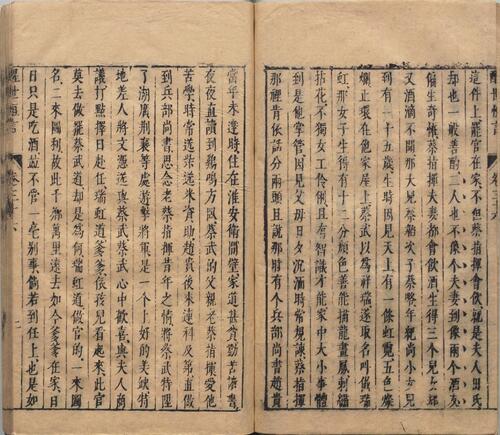 這件上罷官在家不但蔡指揮會飲就是夫人田氏
却也一般善酌二人也不像個夫妻到像兩個酒友
偏生奇怪蔡指揮夫妻都會飲酒生得三個兒女却
又酒滴不聞那大兒蔡韜次子蔡略年紀尚小女兒
到有一十五歲生時因見天上有一條虹霓五色燦
爛正環在他家屋上蔡武以爲祥瑞遂取名叫做瑞
虹那女子生得有十二分顏色善能描龍畫鳳刺繡
拈花不獨女工伶俐且有智識才能家中大小事體
到是他掌管因見父母日夕沉湎時常規諫蔡指揮
那裡肯依話分兩頭且說那時有個兵部尚書趙貴
當年未達時住在淮安衛間壁家道甚貧勤苦讀書
夜夜直讀到鷄鳴方臥蔡武的父親老蔡指揮愛他
苦學時常送柴送米資助趙貴後來連科及第直做
到兵部尚書思念老蔡指揮昔年之情將蔡武特陞
了湖廣荊襄等處遊擊將軍是一個上好的美缺特
地差人將文憑送與蔡武蔡武心中歡喜與夫人商
議打點擇日赴任瑞虹道爹爹依孩兒看起來此官
莫去做罷蔡武道却是爲何瑞虹道做官的一來圖
名二來圖利故此千鄉萬里遠去如今爹爹在家日
日只是吃酒並不管一毫別事倘若到任上也是如
醒世恒言 卷三十六 二